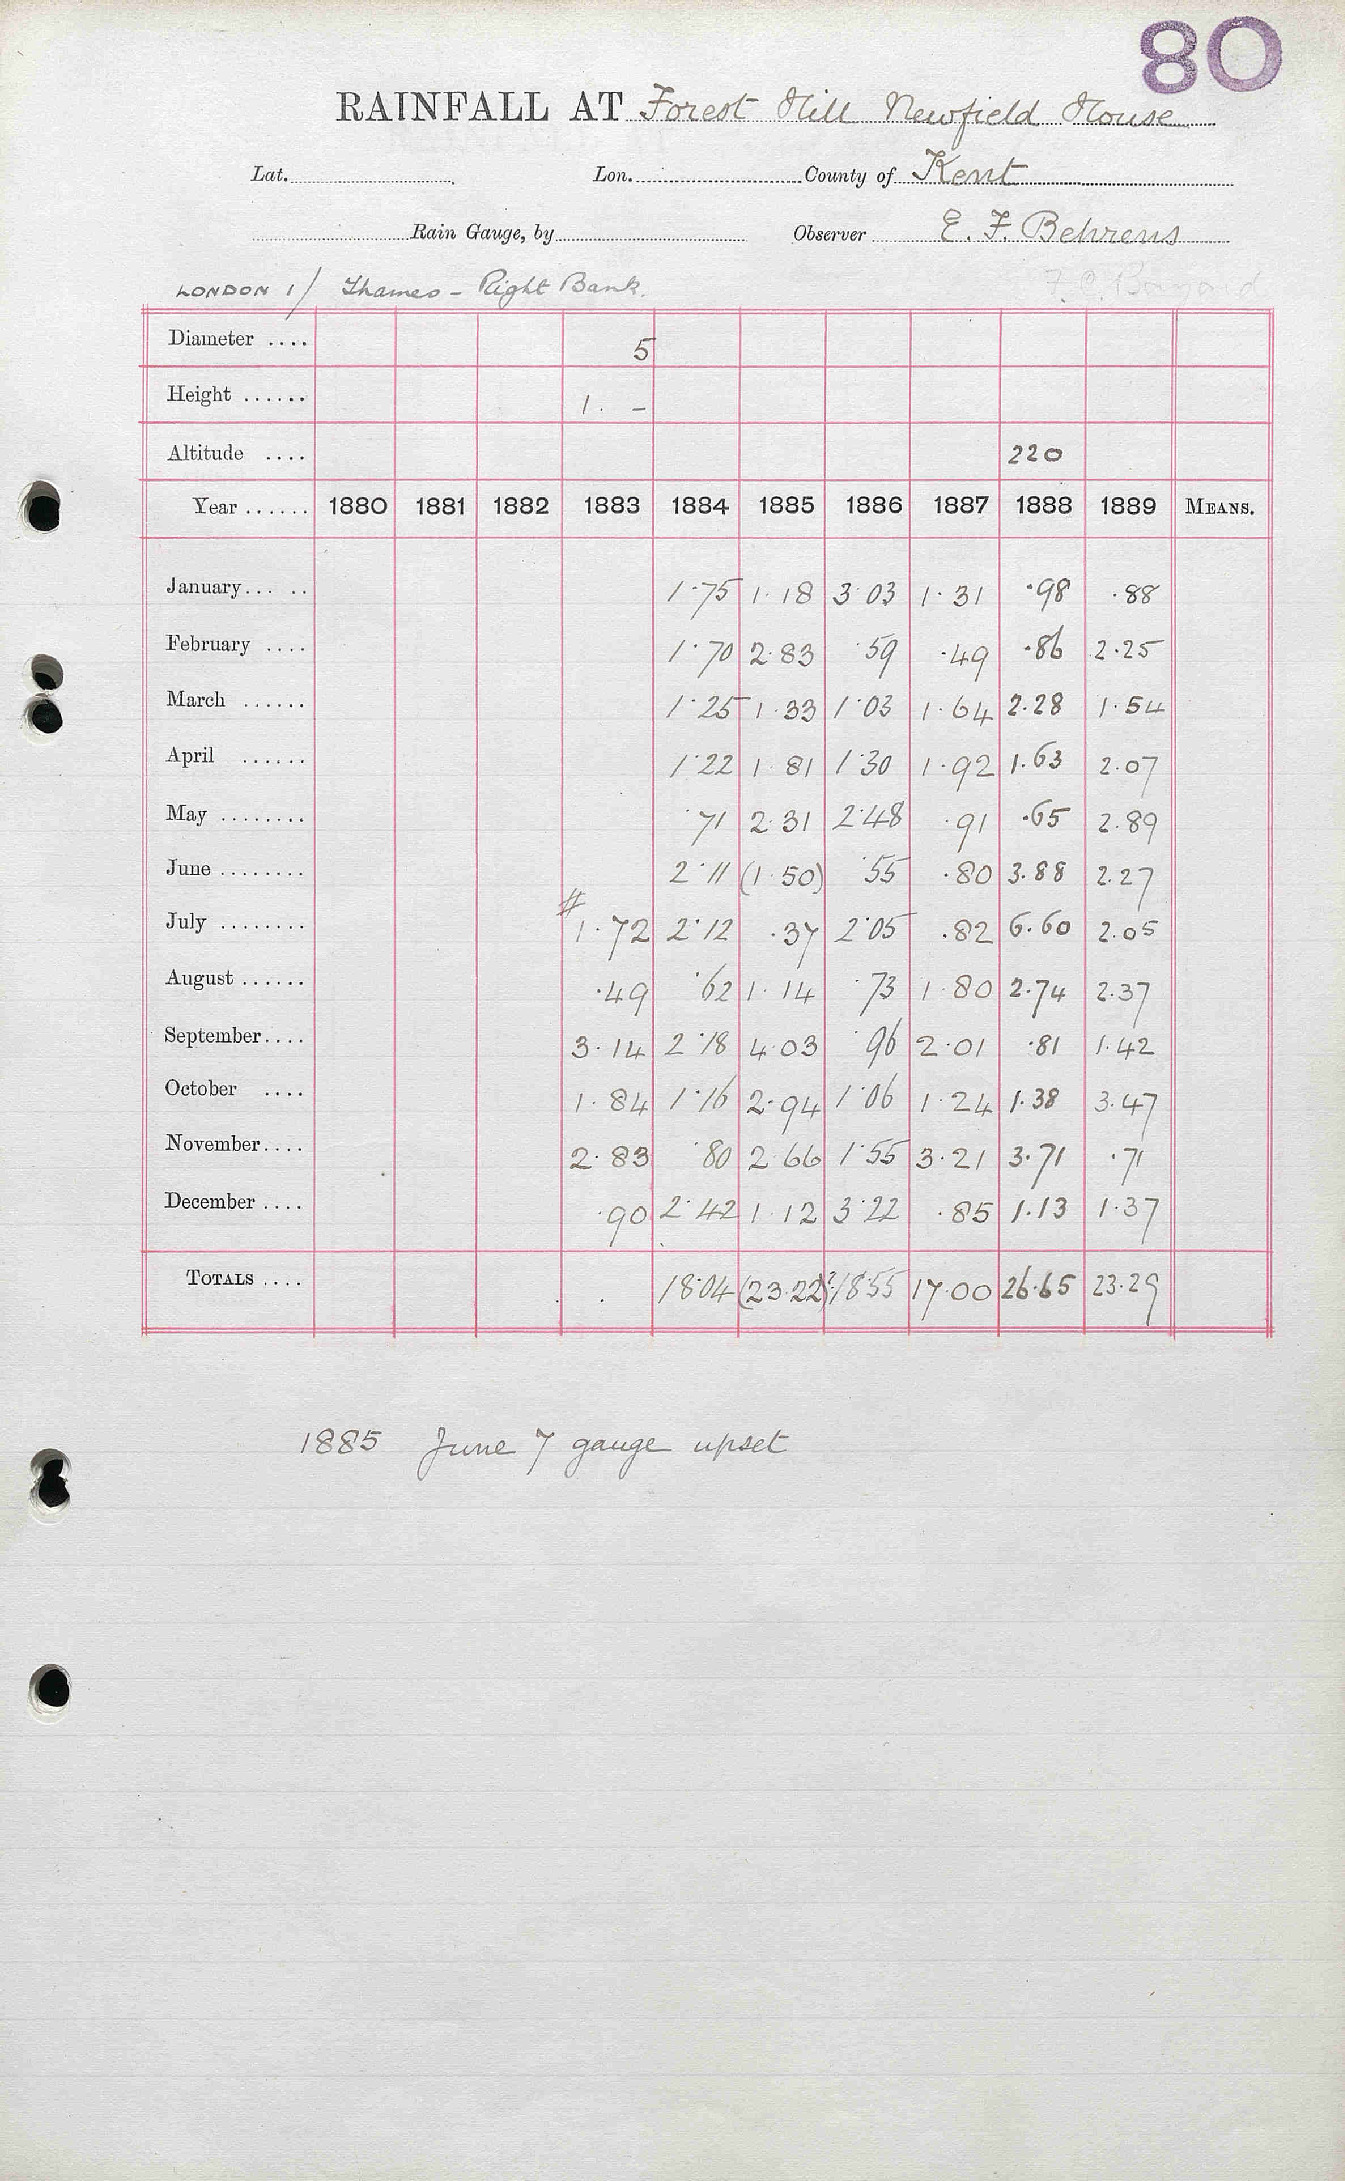 80
RAINFALL AT Forest Hill Newfield House
Lat. Lon. County of Kent
Rain Gauge, by Observer E. F. Behrens
LONDON 1/ Thames - Right Bank.
Diameter .... 5
Height ...... 1. -
Altitude .... 220
Year ...... 1880 1881 1882 1883 1884 1885 1886 1887 1888 1889 MEANS.
January... .. 1.75 1.18 3.03 1.31 .98 .88
February .... 1.70 2.83 .59 .49 .86 2.25
March ...... 1.25 1.33 1.03 1.64 2.28 1.54
April ...... 1.22 1.81 1.30 1.92 1.63 2.07
May ........ .71 2.31 2.48 .91 .65 2.89
June ........ 2.11 (1.50) .55 .80 3.88 2.27
July ........ #1.72 2.12 .37 2.05 .82 6.60 2.05
August ...... .49 .62 1.14 .73 1.80 2.74 2.37
September.... 3.14 2.18 4.03 .96 2.01 .81 1.42
October .... 1.84 1.16 2.94 1.06 1.24 1.38 3.47
November.... 2.83 .80 2.66 1.55 3.21 3.71 .71
December .... .90 2.42 1.12 3.22 .85 1.13 1.37
TOTALS .... 18.04 (23.22)? 18.55 17.00 26.65 23.29
1885 June 7 gauge upset